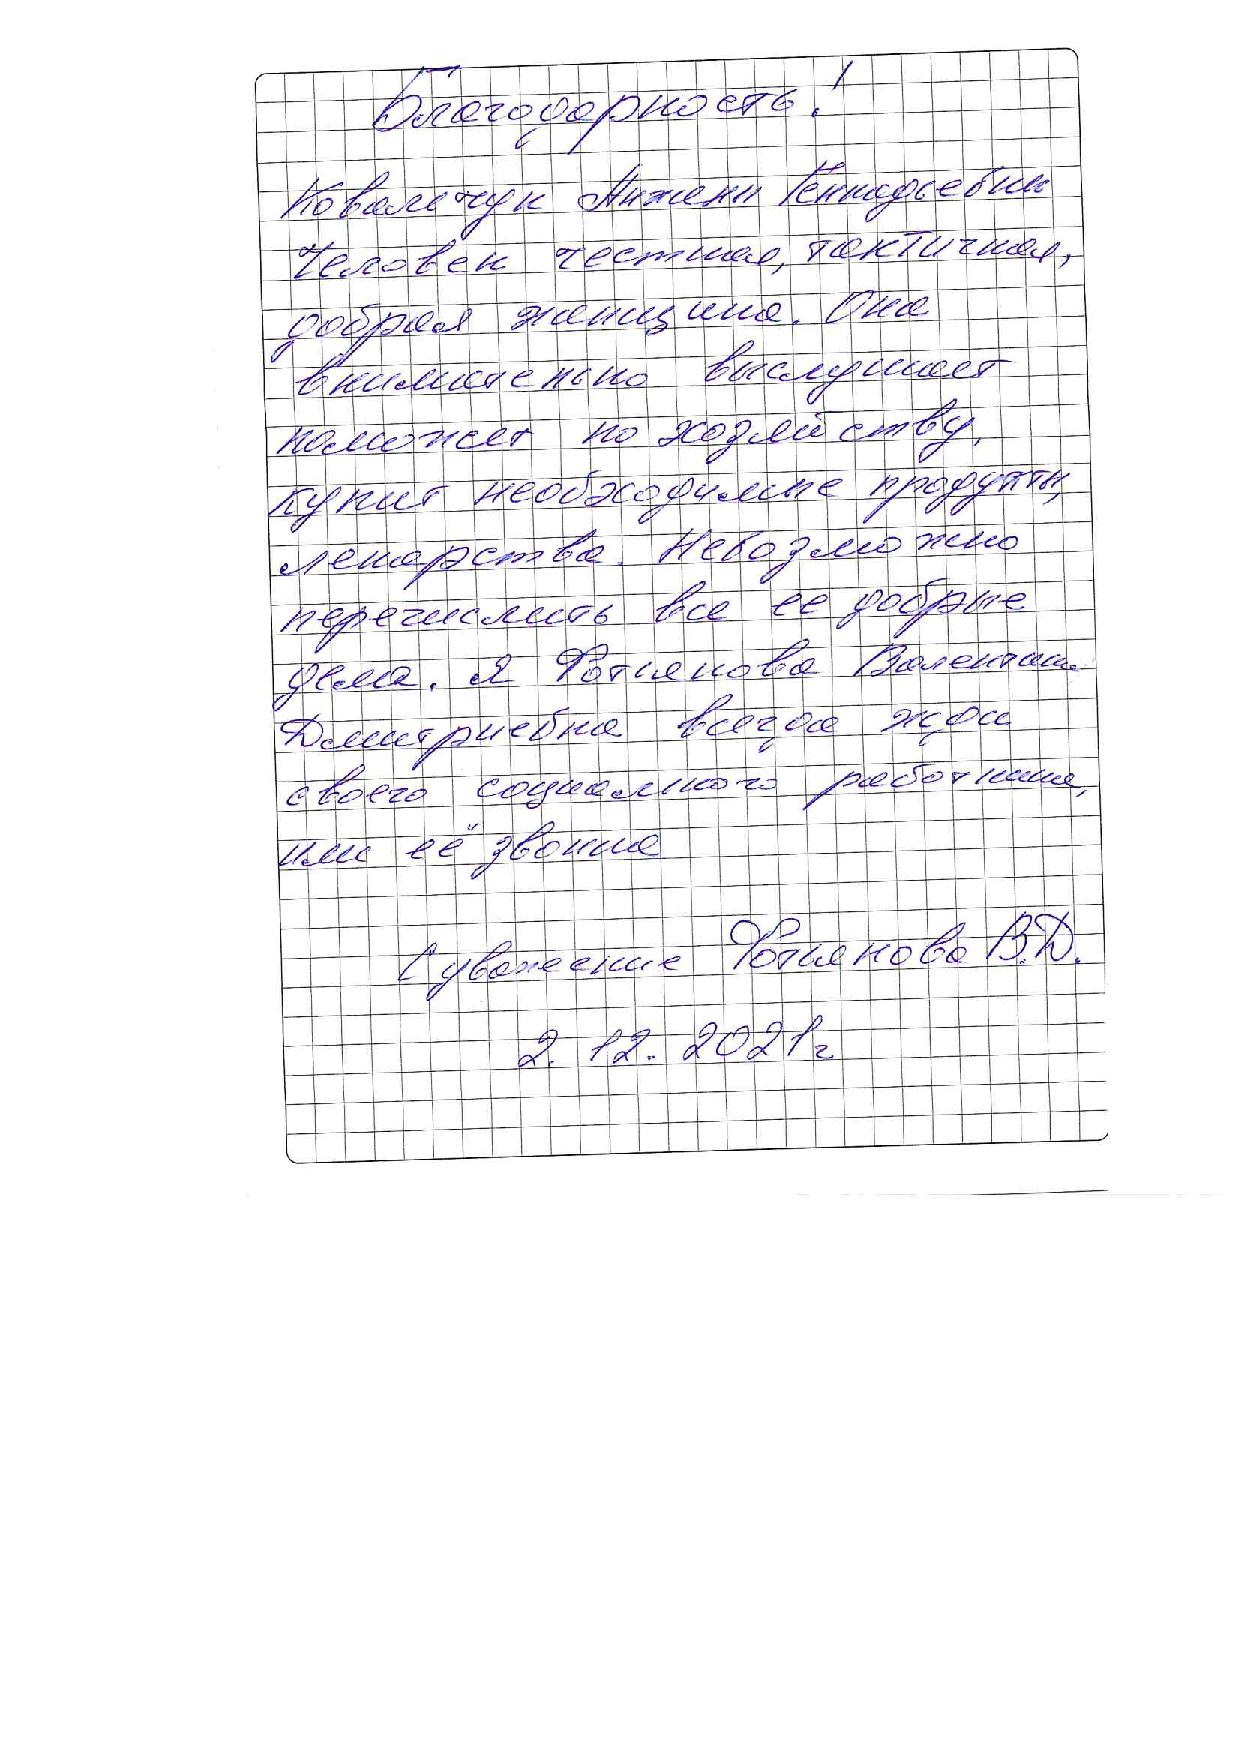 Благодарность!
Ковальчук Анжели Геннадьевны
Человек честная, тактичная,
добрая женщина. Она
внимательно выслушает
поможет по хозяйству,
купит необходимые продукты,
лекарства. Невозможно
перечислить все ее добрые
дела. Я Фотьянова Валентина
Дмитриевна всегда жду
своего социального работника,
или её звонка
С уважение Фотьянова В.Д.
2. 12. 2021г